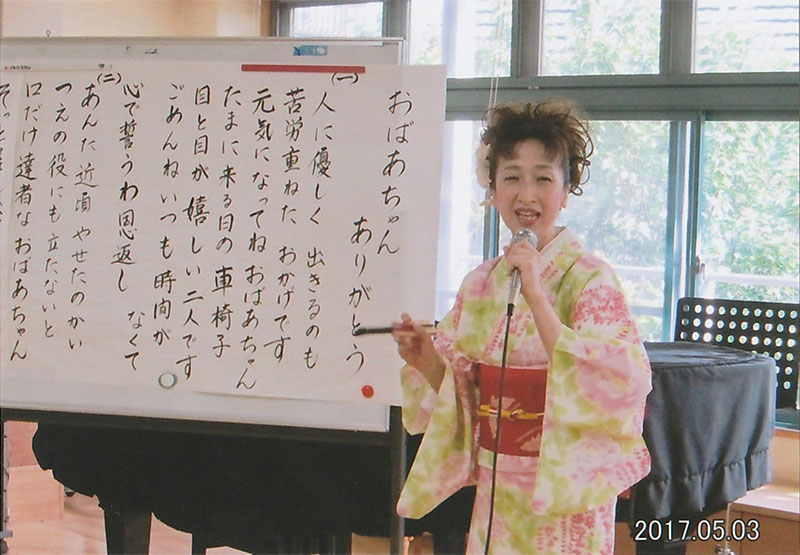 おばあちゃん
ありがとう
(一)
人に優しく 出きるのも
苦労重ねた おかげです
元気になってね おばあちゃん
たまに来る日の 車椅子
目と目が嬉しい 二人です
ごめんね いつも 時間が
なくて
心で誓うわ 恩返し
(二)
あんた近頃 やせたのかい
つえの役にも 立たないと
口だけ達者な おばあちゃん
2017.05.03